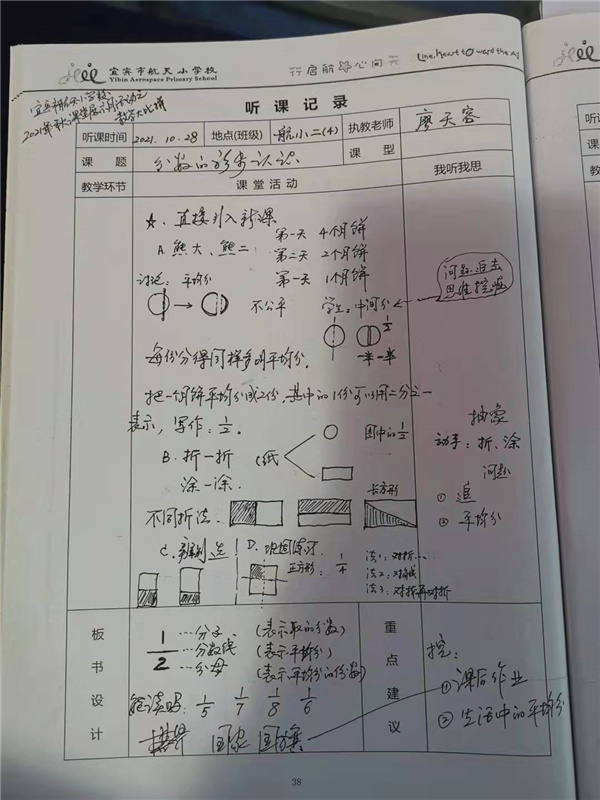 宜宾市航天小学校
Yibin Aerospace Primary School
行启航 心向天
Line, heart to ward the
宜宾市航天小学校
听课记录
听课时间 2021.10.28 地点(班级) 航小二(4) 执教老师 廖天容
课题 分数的初步认识 课型
教学环节 课堂活动 我听我思
☆、直接引入新课
A. 熊大、熊二
第一天 4个月饼
第二天 2个月饼
第一天 1个月饼
讨论: 平均分
不公平
学生: 中间分
问题追击
思维挖掘
1/2
一半一半
每份分得同样多叫平均分.
把一个月饼平均分成2份,其中的1份可以用二分之一
表示, 写作: 1/2.
B. 折一折 (纸
涂一涂.
图中的1/2
抽象
动手: 折、涂
问题
① 追
② 平均分
不同折法.
长方形
C. 辨别
D.
正方形: 1/4
法1: 对折
法2: 对角线
法3: 对折再对折
板书设计
1/2
…分子 (表示取的分数)
…分数线 (表示平均分)
…分母 (表示平均分的份数)
能读吗: 1/5 1/7 1/8 1/6
国家 国旗
重点建议
挖:
①课后作业
② 生活中的平均分
38